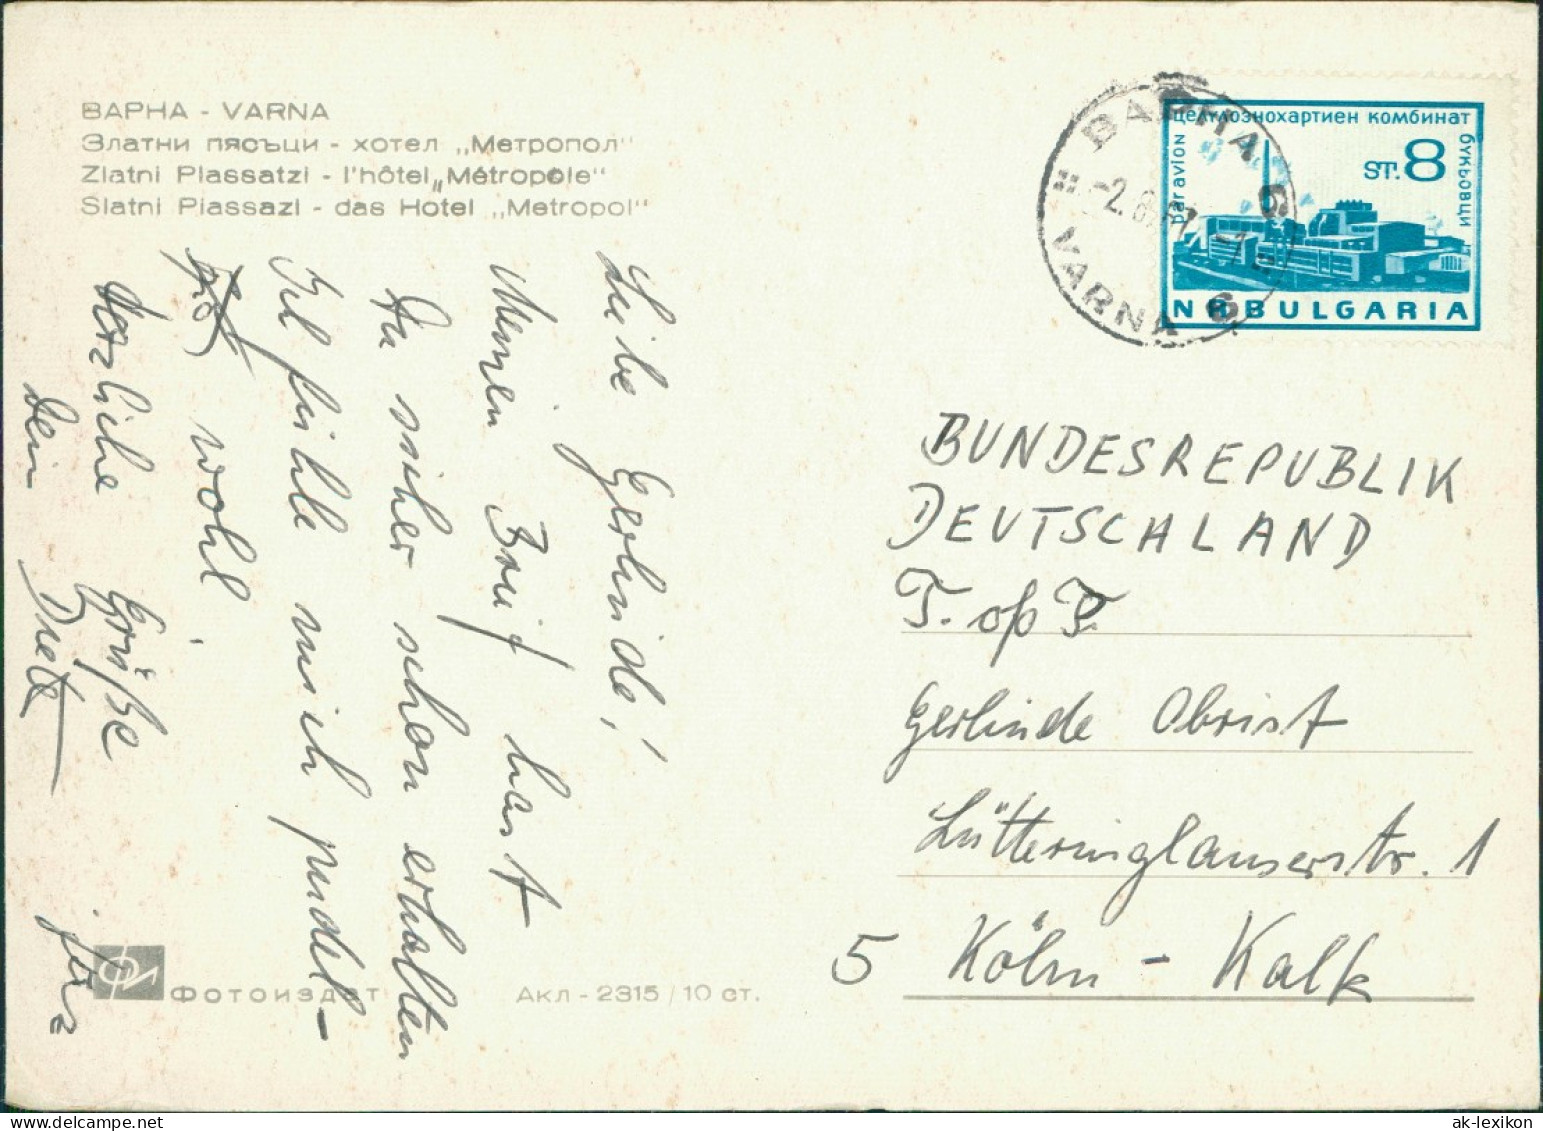 ВАРНА - VARNA
Златни пясъци - хотел „Метропол"
Zlatni Piassatzi - l'hôtel „Métropole"
Slatni Piassazi - das Hotel „Metropol"
Liebe Gerlinde!
Meinen Brief hast
Du sicher schon erhalten
Ich fühle mich pudel-
wohl.
Herzliche Grüße
Dein
Фотоиздат
Акл - 2315 / 10 ст.
ВАРНА
VARNA
целулознохартиен комбинат
par avion
ST. 8
букьовци
NRBULGARIA
BUNDESREPUBLIK
DEUTSCHLAND
Gerlinde Obrist
Lütteringlauserstr. 1
5 Köln - Kalk
ak-lexikon.com